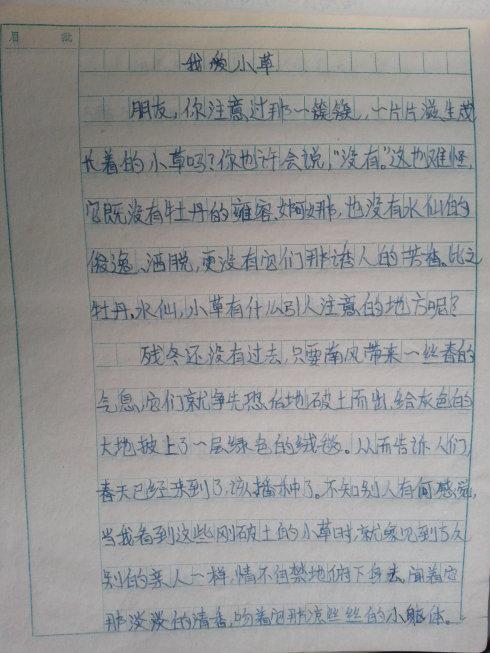 眉 批
我爱小草
朋友，你注意过那一簇簇，一片片滋生成
长着的小草吗？你也许会说，“没有。”这也难怪，
它既没有牡丹的雍容、婀娜，也没有水仙的
俊逸、洒脱，更没有它们那诱人的芳香。比之
牡丹、水仙，小草有什么引人注意的地方呢？
残冬还没有过去，只要南风带来一丝春的
气息，它们就争先恐后地破土而出，给灰色的
大地披上了一层绿色的绒毯。从而告诉人们，
春天已经来到了，该播种了。不知别人有何感觉，
当我看到这些刚破土的小草时，就象见到了久
别的亲人一样，情不自禁地俯下身去，闻着它
那淡淡的清香，吻着它那凉丝丝的小躯体。